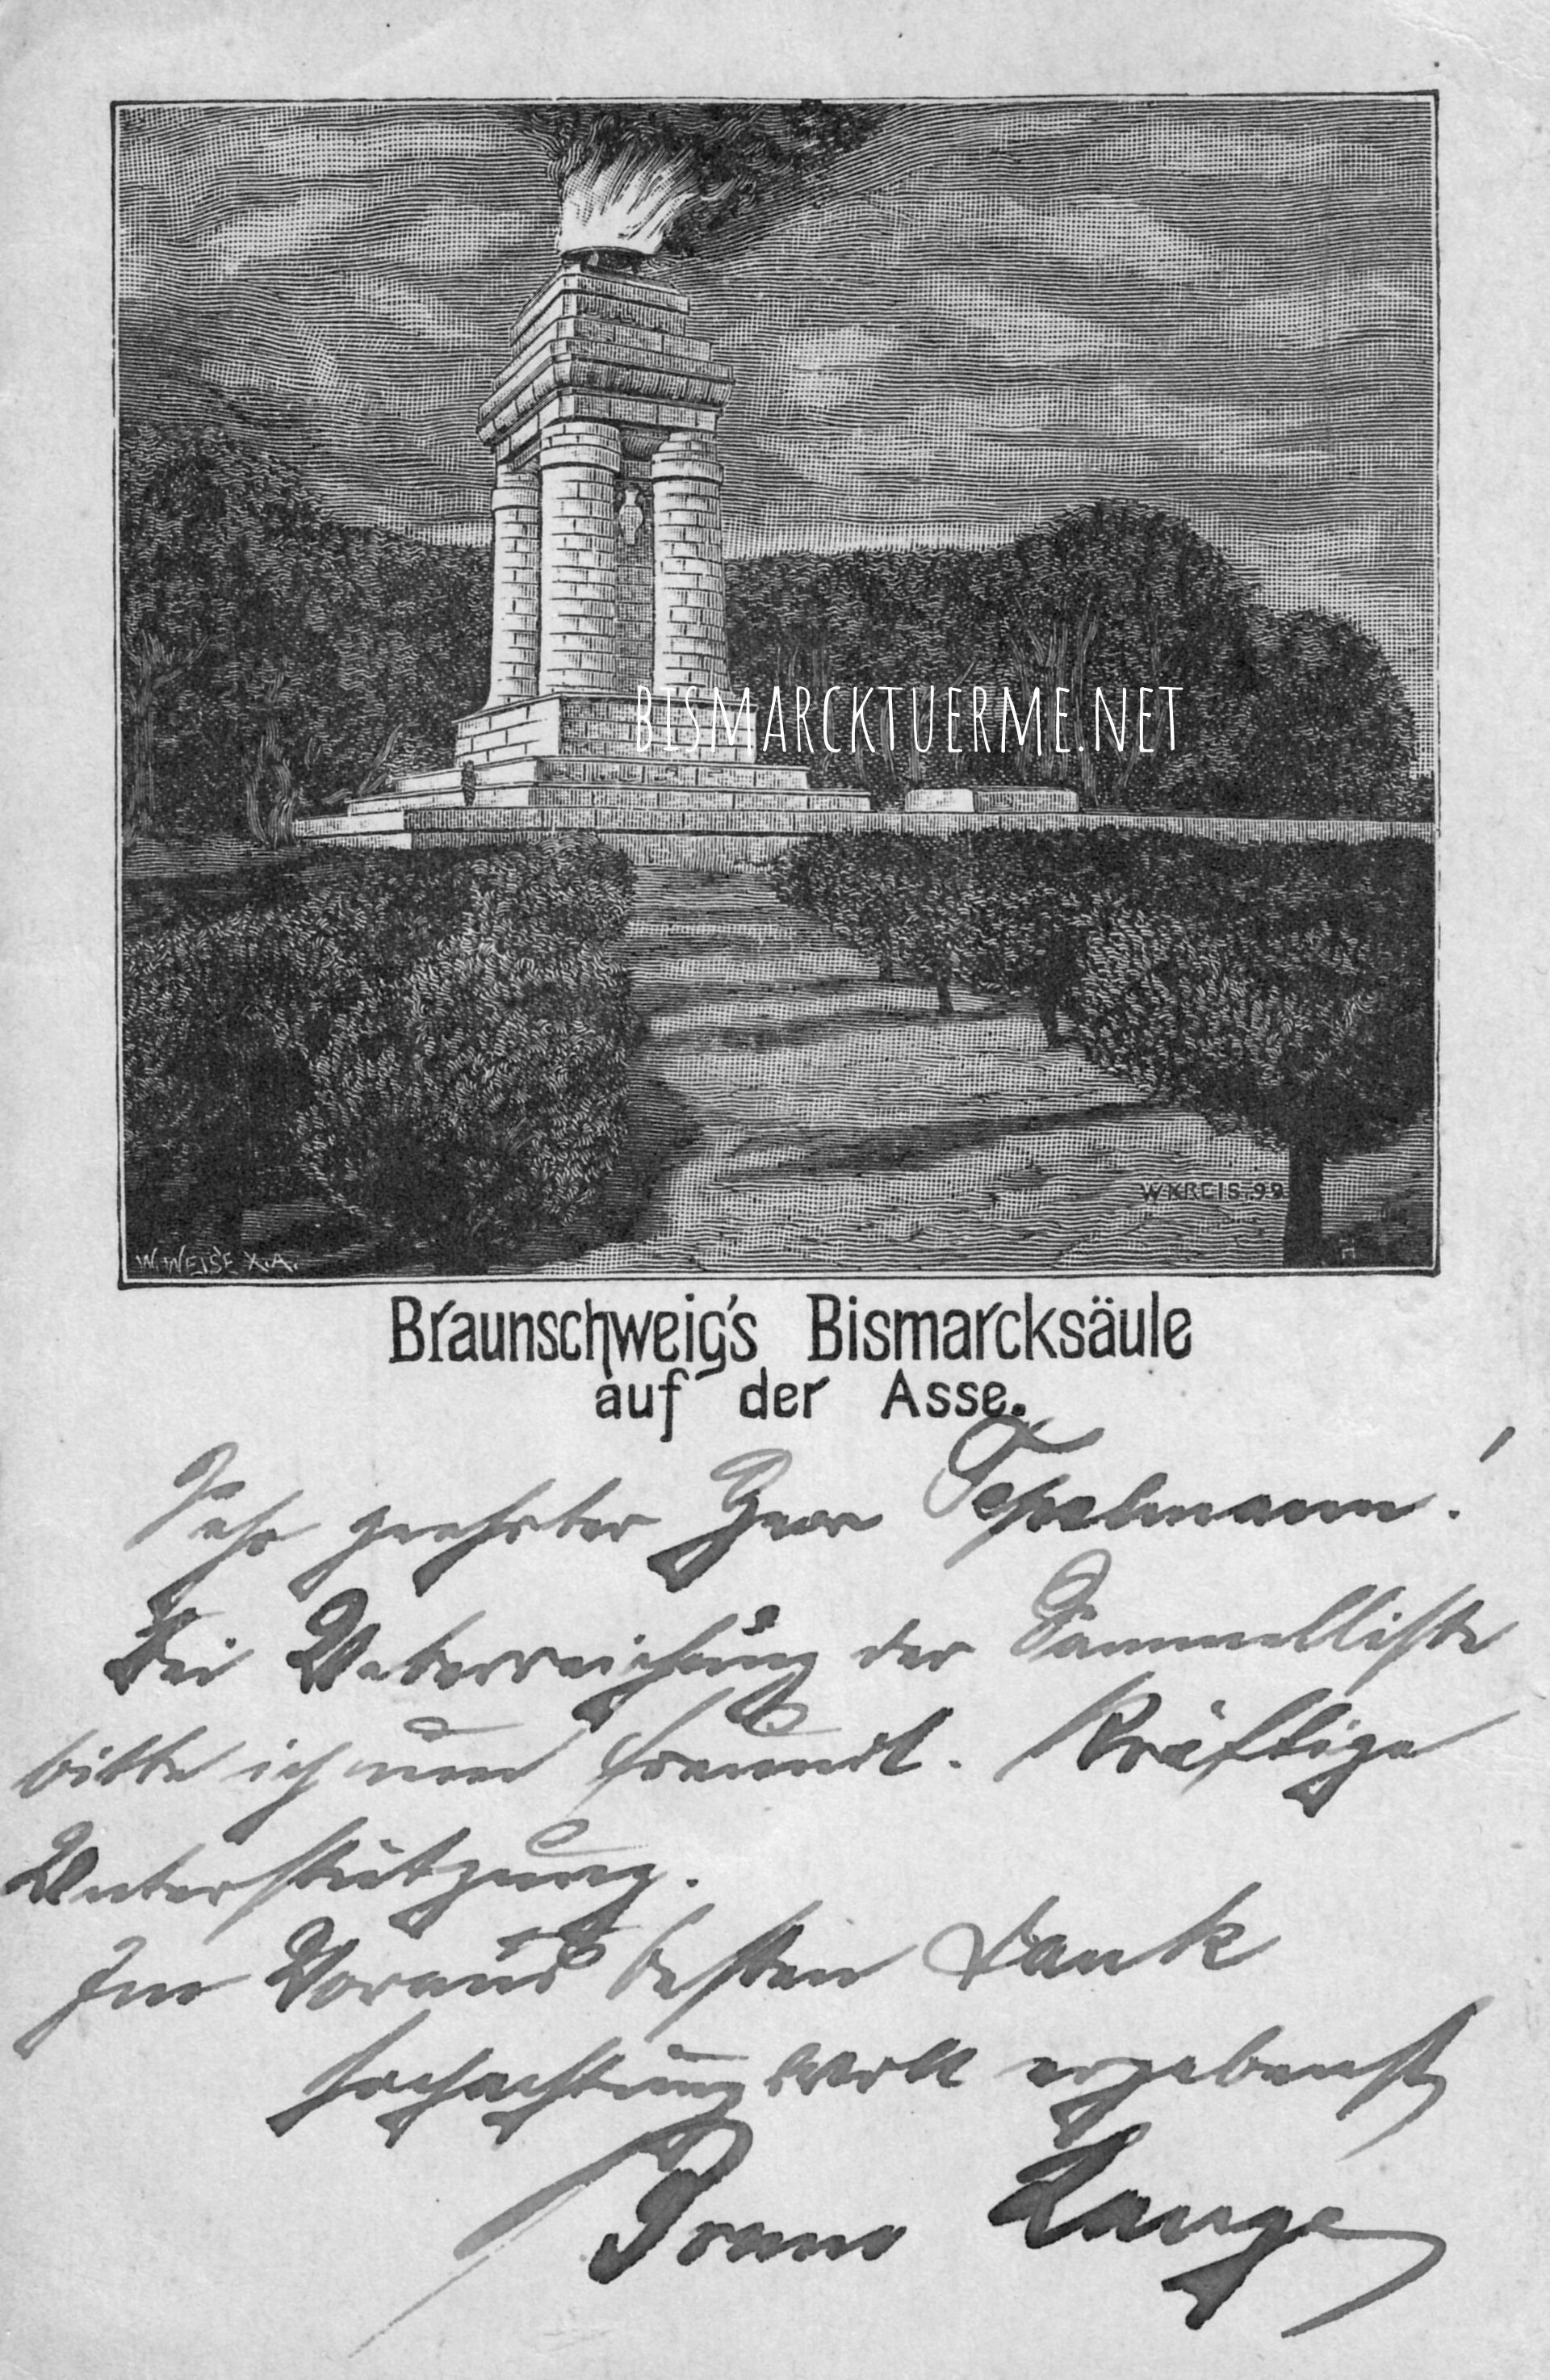 BISMARCKTUERME.NET
W KREIS. 99
W. WEISE X.A.
Braunschweig's Bismarcksäule
auf der Asse.
Sehr geehrter Herr Tepelmann!
Bei Ueberreichung der Sammelliste
bitte ich um freundl. kräftige
Unterstützung.
Im Voraus besten Dank
hochachtungsvoll ergebenst
Lange